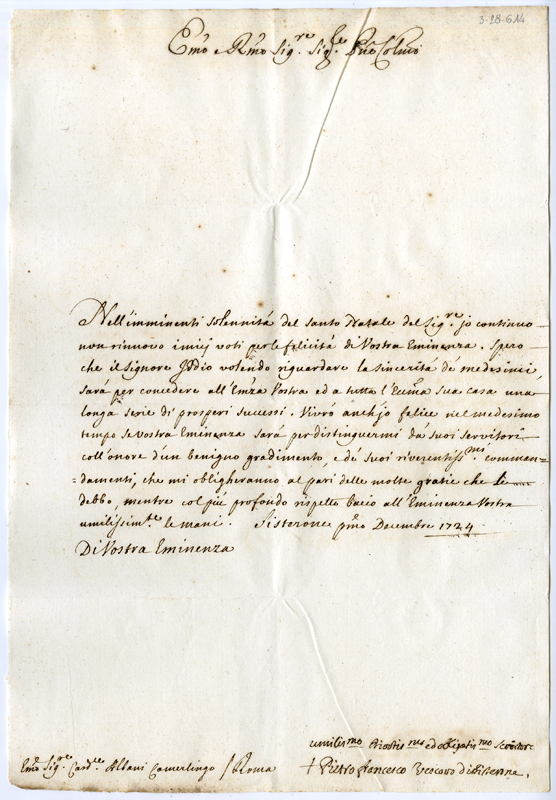 3-28-614
Emo e Rmo Sigre Sigre Pne Colmo
Nell'imminenti solennità del santo Natale del Sigre io continuo
non rinuovo i miei voti per le felicità di Vostra Eminenza. Spero
che il Signore Iddio volendo riguardare la sincerità de medesimi,
sarà per concedere all'Emza Vostra ed a tutta l'Eccma sua casa una
longa serie di prosperi successi. Vivrò anch'io felice nel medesimo
tempo se vostra Eminenza sarà per distinguermi da suoi servitori
coll'onore d'un benigno gradimento, e de suoi riveritissmi comman-
=damenti, che mi obligheranno al pari delle molte gratie che le
debbo, mentre col più profondo rispetto bacio all'Eminenza Vostra
umilissimte le mani. Sisterone pmo Decembre 1724
Di Vostra Eminenza
umilismo ed servitore
Emo Sigre Cardle Albani Camerlingo / Roma
+ Pietro francesco Vescovo di